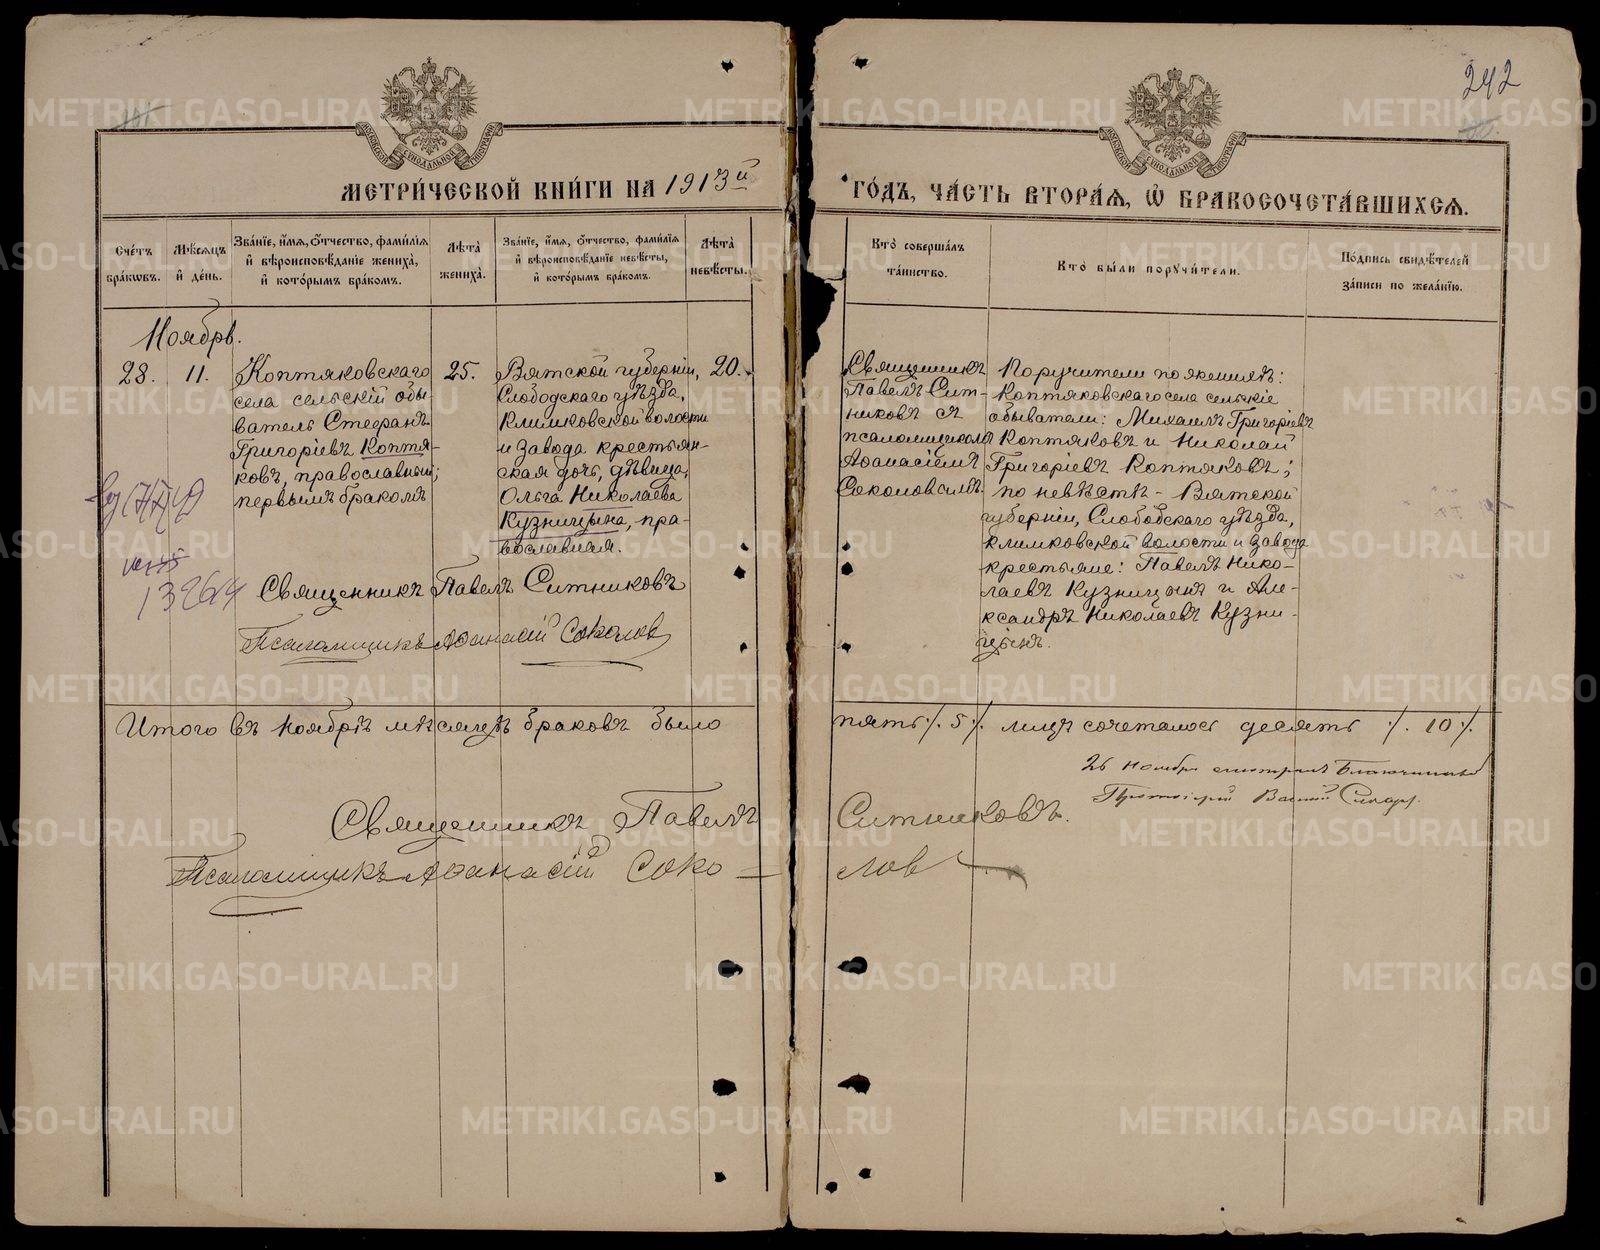 242
МОСКОВСКОЙ СѴНОДАЛЬНОЙ ТИПОГРАФІИ
МОСКОВСКОЙ СѴНОДАЛЬНОЙ ТИПОГРАФІИ
МЕТРИ́ЧЕСКОЙ КНИ́ГИ НА 1913й
ГО́ДЪ, ЧА́СТЬ ВТОРА́Я, Ѽ БРАКОСОЧЕТА́ВШИХСЯ.
Сче́тъ
бра́кѡвъ.
Мѣ́сяцъ
и҆ де́нь.
Зва́нїе, и҆́мя, ѻ҆́тчество, фами́лїя
и҆ вѣроисповѣ́данїе жениха̀,
и҆ кото́рымъ бра́комъ.
Лѣ́та̀
жениха̀.
Зва́нїе, и҆́мя, ѻ҆́тчество, фами́лїя
и҆ вѣроисповѣ́данїе невѣ́сты,
и҆ кото́рымъ бра́комъ.
Лѣ́та̀
невѣ́сты.
Кто̀ соверша́лъ
та́инство.
Кто̀ бы́ли порꙋчи́тели.
По́дпись свидѣ́телей
за́писи по жела́нїю.
Ноябрь.
28.
11.
Коптяковскаго
села сельскій обы-
ватель Стефанъ
Григоріевъ Коптя-
ковъ, православный;
первымъ бракомъ
25.
Вятской губерніи,
Слободскаго уѣзда,
Климковской волости
и завода крестьян-
ская дочь, дѣвица,
Ольга Николаева
Кузницына, пра-
вославная.
20.
Священникъ
Павелъ Сит-
никовъ съ
псаломщикомъ
Аѳанасіемъ
Соколовымъ.
Поручители по женихѣ:
Коптяковскаго села сельскіе
обыватели: Михаилъ Григоріевъ
Коптяковъ и Николай
Григоріевъ Коптяковъ;
по невѣстѣ - Вятской
губерніи, Слободскаго уѣзда,
Климковской волости и завода
крестьяне: Павелъ Нико-
лаевъ Кузницынъ и Але-
ксандръ Николаевъ Кузни-
цынъ.
13264
Священникъ Павелъ Ситниковъ
Псаломщикъ Аѳанасій Соколовъ
Итого въ ноябрѣ мѣсяцѣ браковъ было пять ./. 5 ./. лицъ сочеталось десять ./. 10 ./.
26 ноября смотрѣлъ Благочинный
Протоіерей
Священникъ Павелъ Ситниковъ.
Псаломщикъ Аѳанасій Соко- лов
METRIKI.GASO-URAL.RU